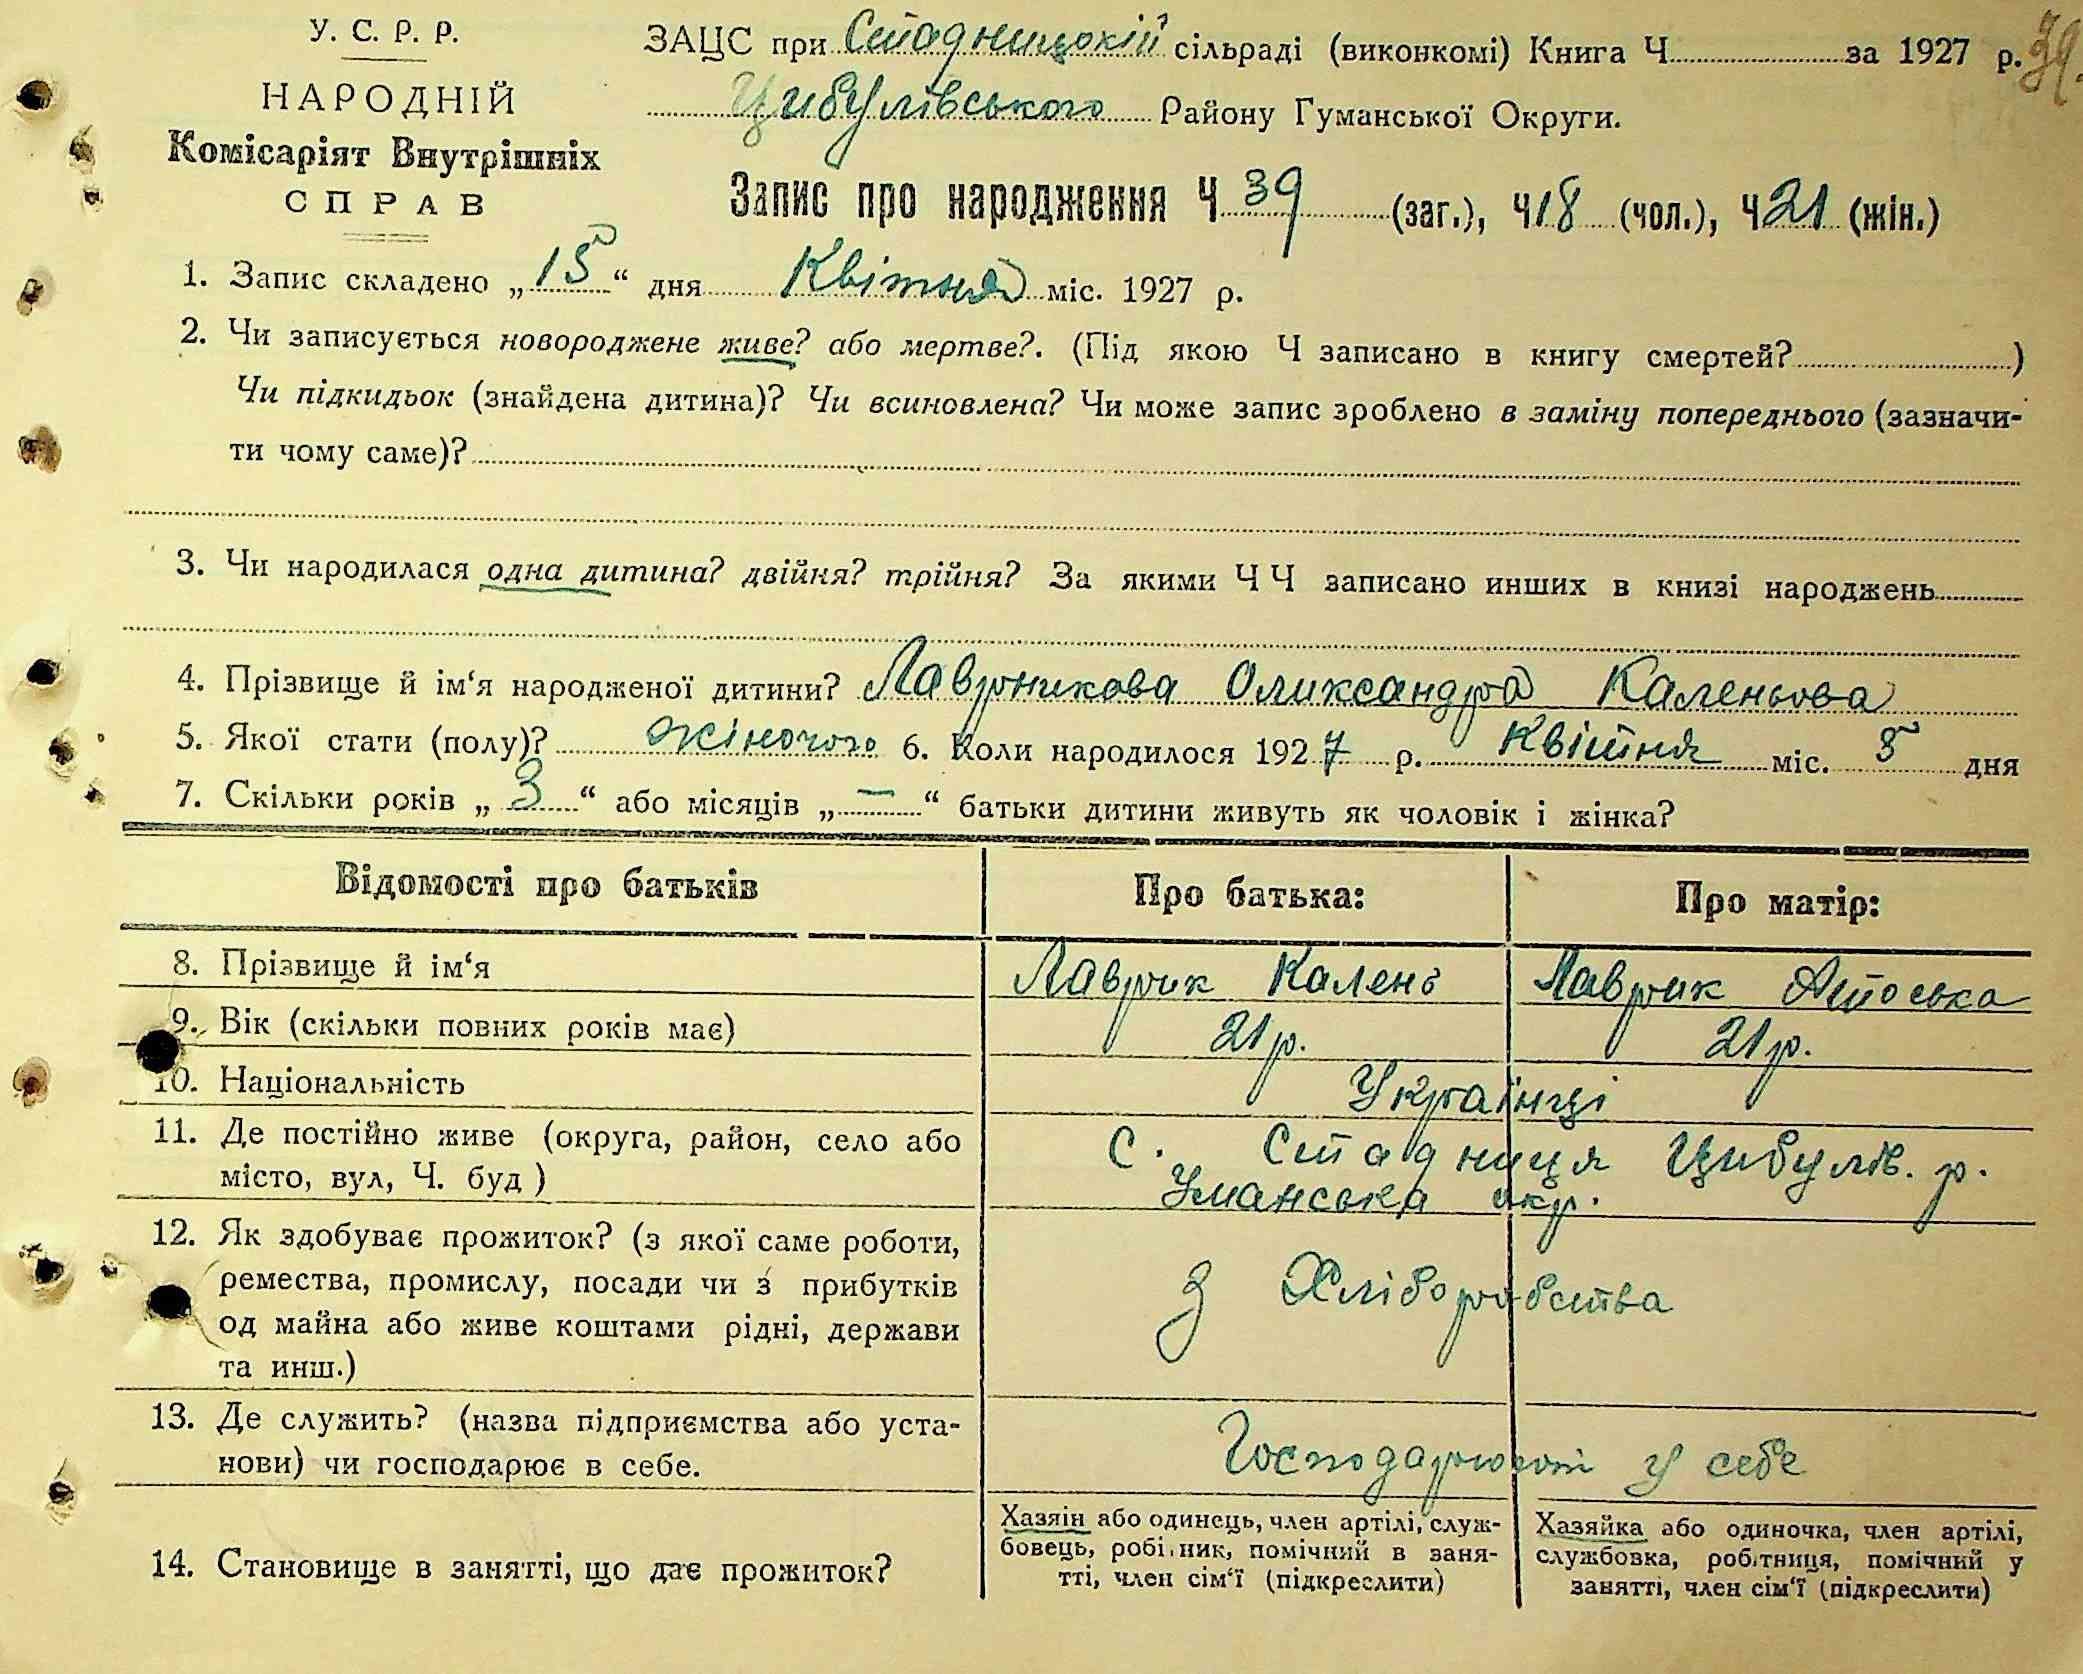 У. С. Р. Р.
НАРОДНІЙ
Комісаріят Внутрішніх
СПРАВ
ЗАЦС при Стадницькій сільраді (виконкомі) Книга Ч. за 1927 р.
39.
Цибулівського Району Гуманської Округи.
Запис про народження Ч 39 (заг.), Ч 18 (чол.), Ч 21 (жін.)
1. Запис складено „ 15 “ дня Квітня міс. 1927 р.
2. Чи записується новороджене живе? або мертве?. (Під якою Ч записано в книгу смертей? )
Чи підкидьок (знайдена дитина)? Чи всиновлена? Чи може запис зроблено в заміну попереднього (зазначи-
ти чому саме)?
3. Чи народилася одна дитина? двійня? трійня? За якими Ч Ч записано инших в книзі народжень
4. Прізвище й ім‘я народженої дитини? Лаврикова Олександра Каленьова
5. Якої стати (полу)? жіночого 6. Коли народилося 1927 р. Квітня міс. 5 дня
7. Скільки років „ 3 “ або місяців „ — “ батьки дитини живуть як чоловік і жінка?
Відомості про батьків Про батька: Про матір:
8. Прізвище й ім‘я Лаврик Калень Лаврик
9. Вік (скільки повних років має) 21 р. 21 р.
10. Національність Українці
11. Де постійно живе (округа, район, село або
місто, вул, Ч. буд )
С. Стадниця Цибулів. р.
Уманська окр.
12. Як здобуває прожиток? (з якої саме роботи,
ремества, промислу, посади чи з прибутків
од майна або живе коштами рідні, держави
та инш.)
З Хліборобства
13. Де служить? (назва підприємства або уста-
нови) чи господарює в себе.
Господарюють у себе
14. Становище в занятті, що дає прожиток?
Хазяїн або одинець, член артілі, служ-
бовець, робітник, помічний в заня-
тті, член сім‘ї (підкреслити)
Хазяйка або одиночка, член артілі,
службовка, робітниця, помічний у
занятті, член сім‘ї (підкреслити)